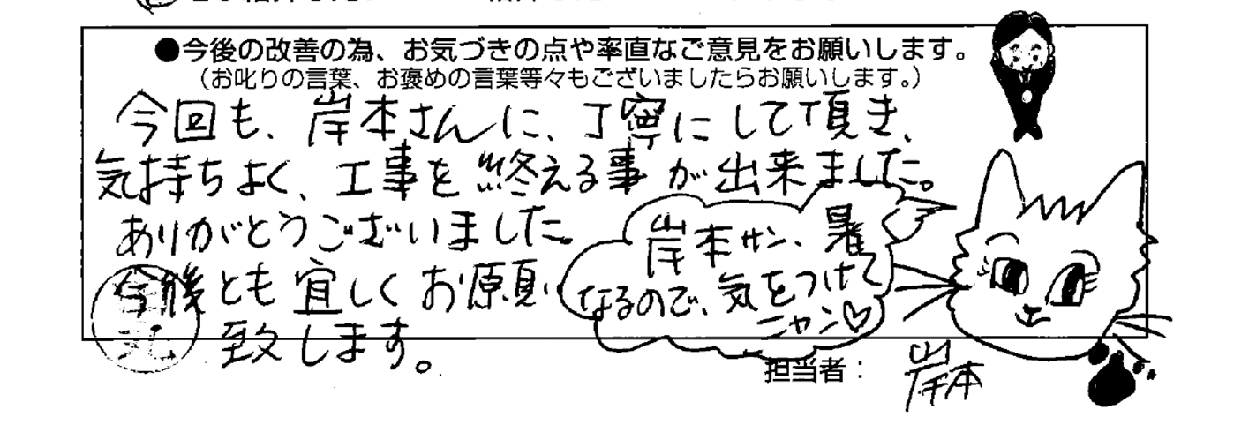 ●今後の改善の為、お気づきの点や率直なご意見をお願いします。
(お叱りの言葉、お褒めの言葉等々もございましたらお願いします。)
今回も、岸本さんに、丁寧にして頂き、
気持ちよく、工事を終える事が出来ました。
ありがとうございました。
今後とも宜しくお願い
致します。
岸本サン、暑く
なるので、気をつけて
ニャン♡
担当者: 岸本